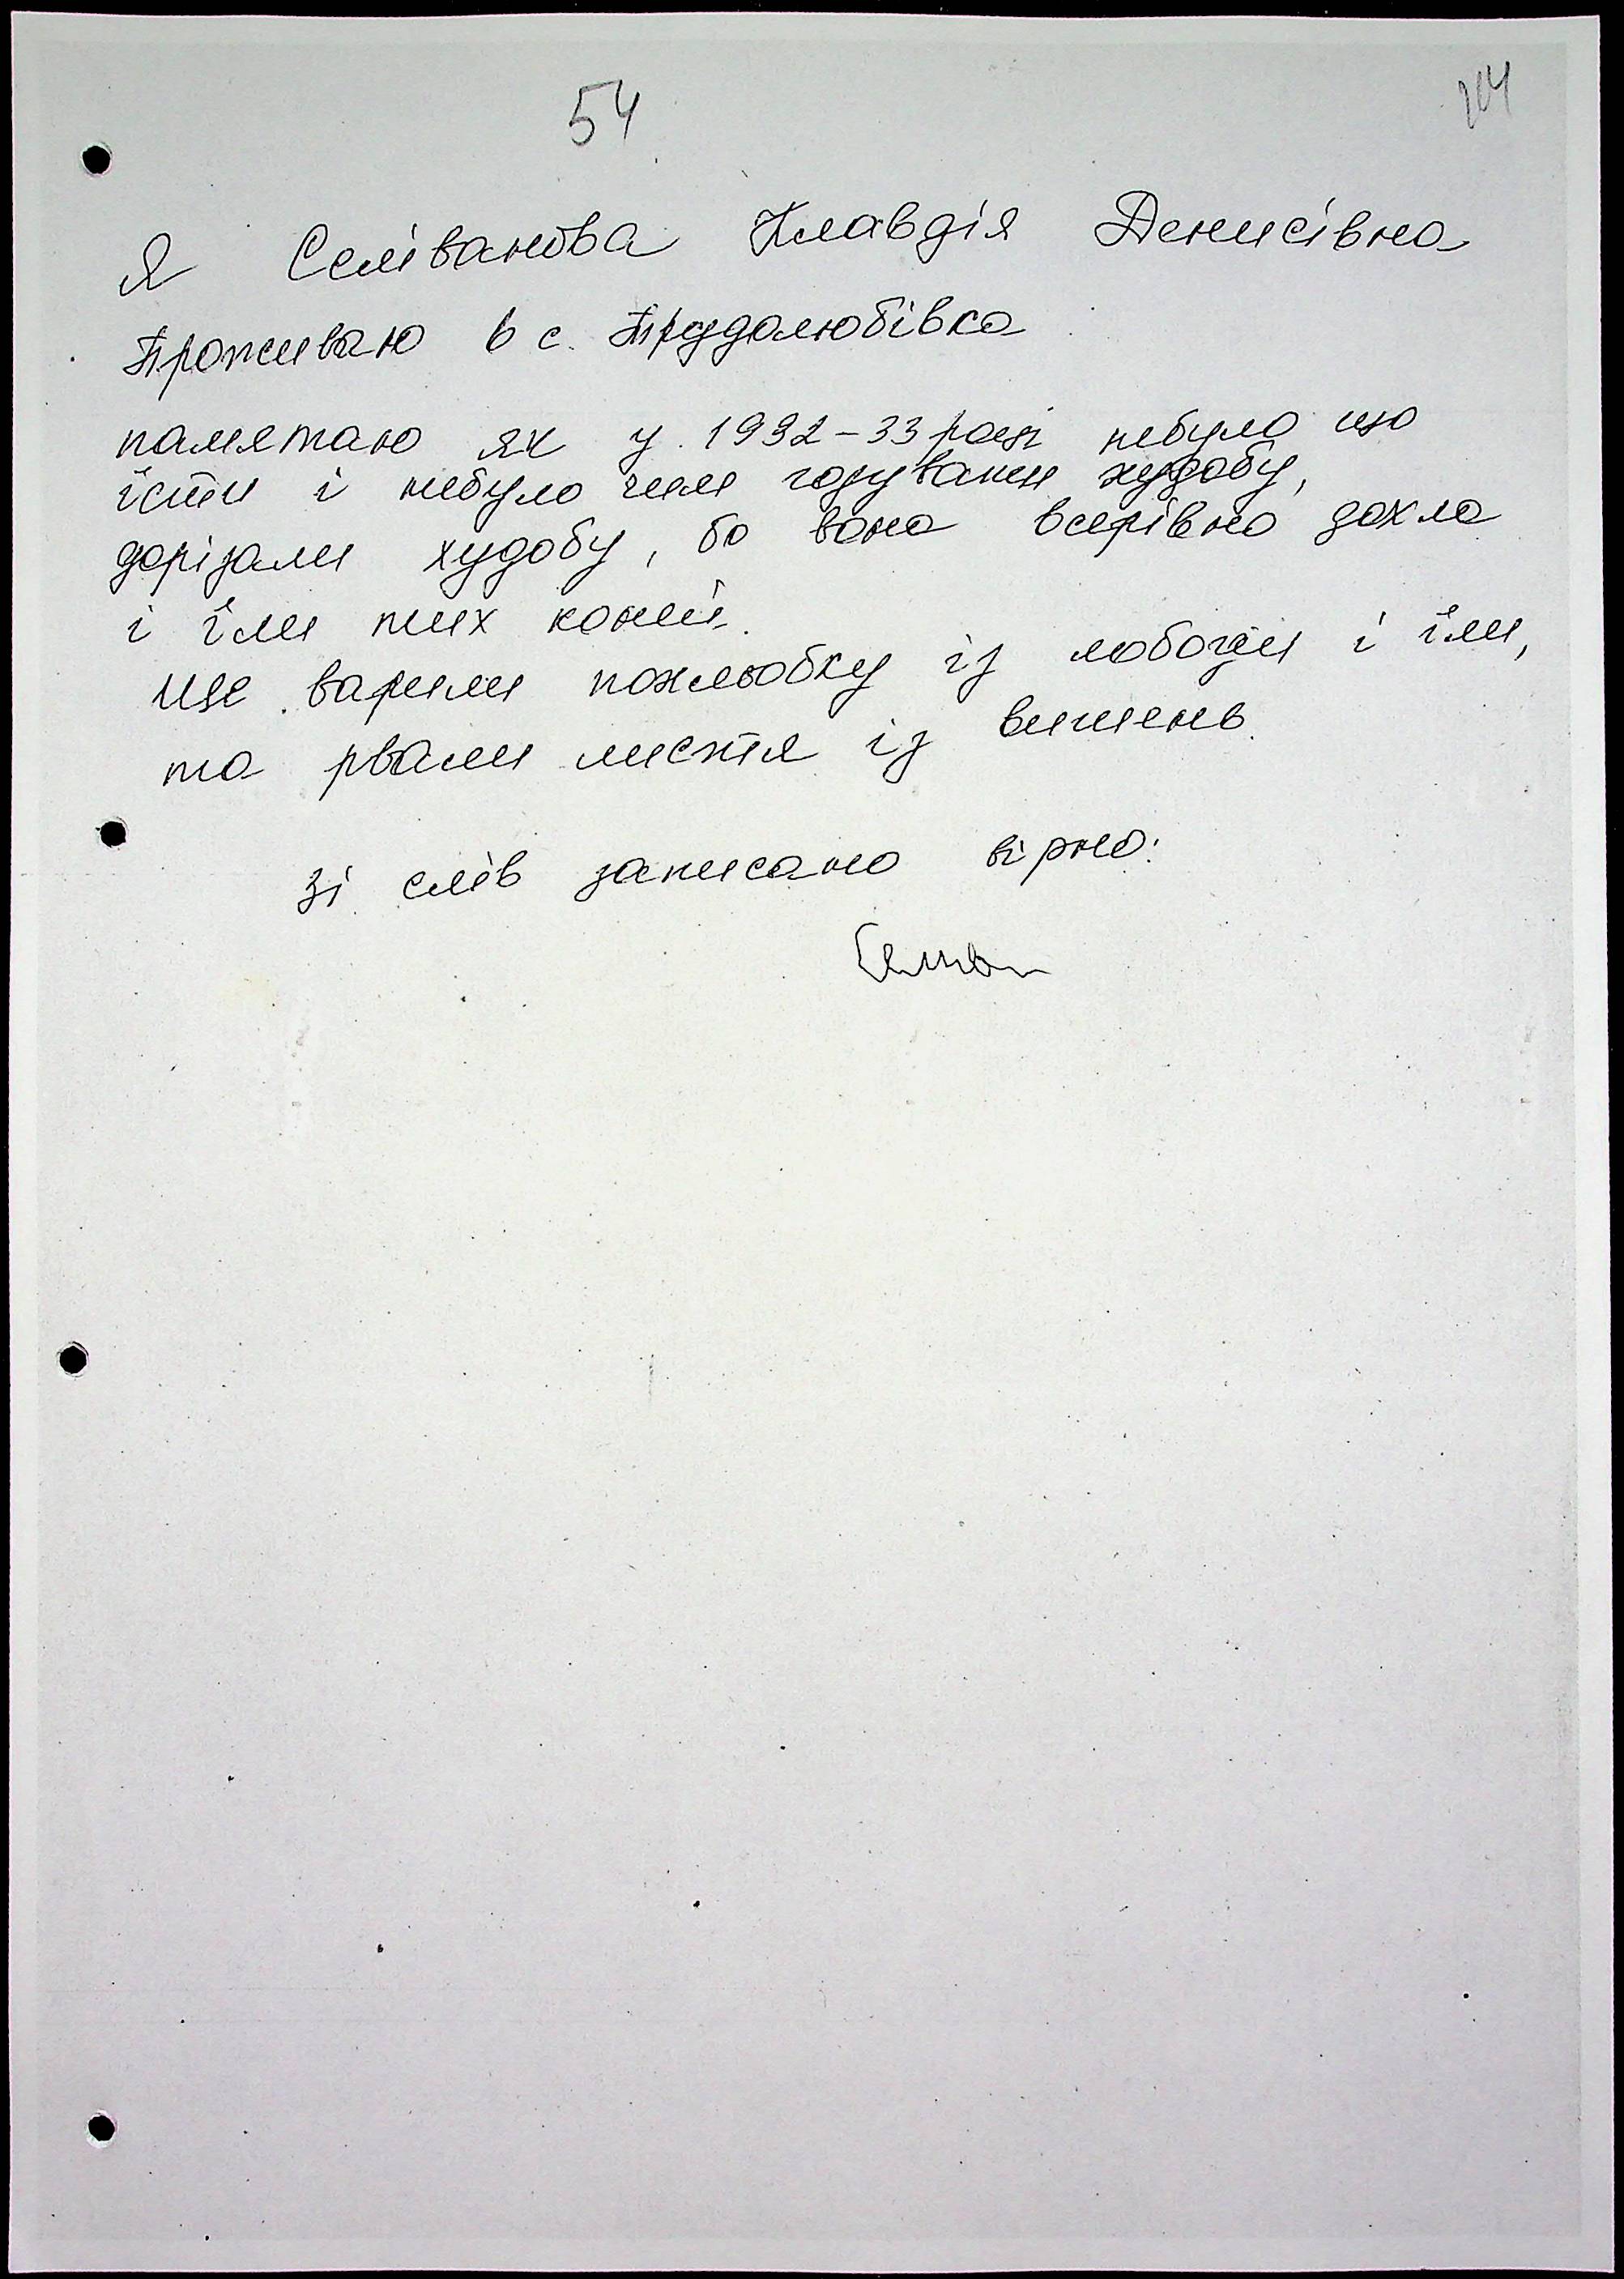 54
Я Селіванова Клавдія Денисівна
Проживаю в с. Трудолюбівка
памятаю як у 1932-33 році небуло що
їсти і небуло чим годувати худобу,
дорізали худобу, бо вона всерівно дохла
і їли тих коней.
Ще варили похльобку із лободи і їли,
та рвали листя із вишень.
Зі слів записано вірно: